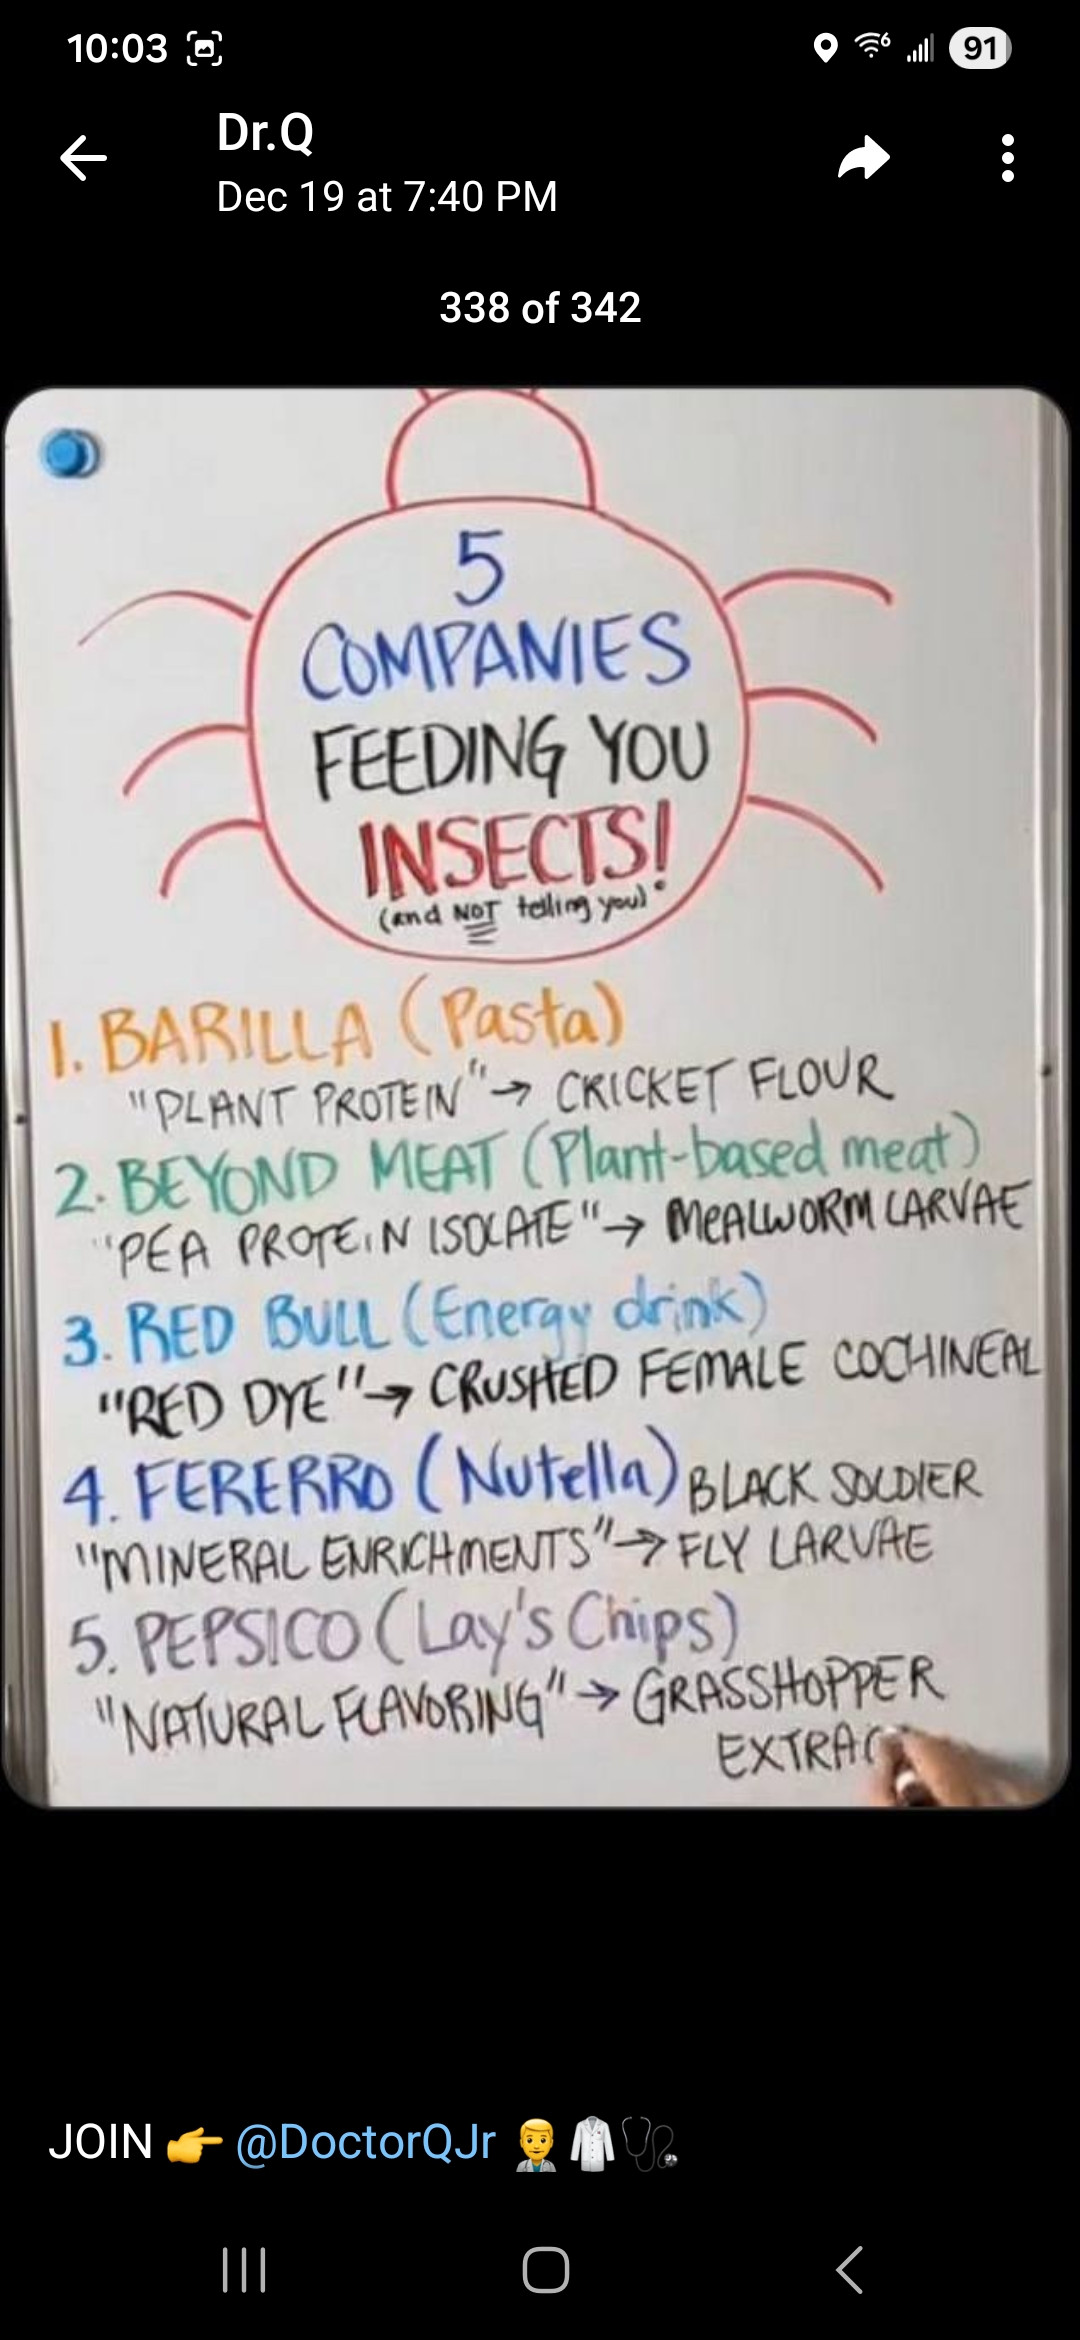 10:03
91
Dr.Q
Dec 19 at 7:40 PM
338 of 342
5
COMPANIES
FEEDING YOU
INSECTS!
(and NOT telling you)
1. BARILLA (Pasta)
"PLANT PROTEIN" → CRICKET FLOUR
2. BEYOND MEAT (Plant-based meat)
"PEA PROTEIN ISOLATE" → MEALWORM LARVAE
3. RED BULL (Energy drink)
"RED DYE" → CRUSHED FEMALE COCHINEAL
4. FERERRO (Nutella)
"MINERAL ENRICHMENTS" → BLACK SOLDIER
FLY LARVAE
5. PEPSICO (Lay's Chips)
"NATURAL FLAVORING" → GRASSHOPPER
EXTRAC
JOIN 👉 @DoctorQJr 👨‍⚕️🥼🩺